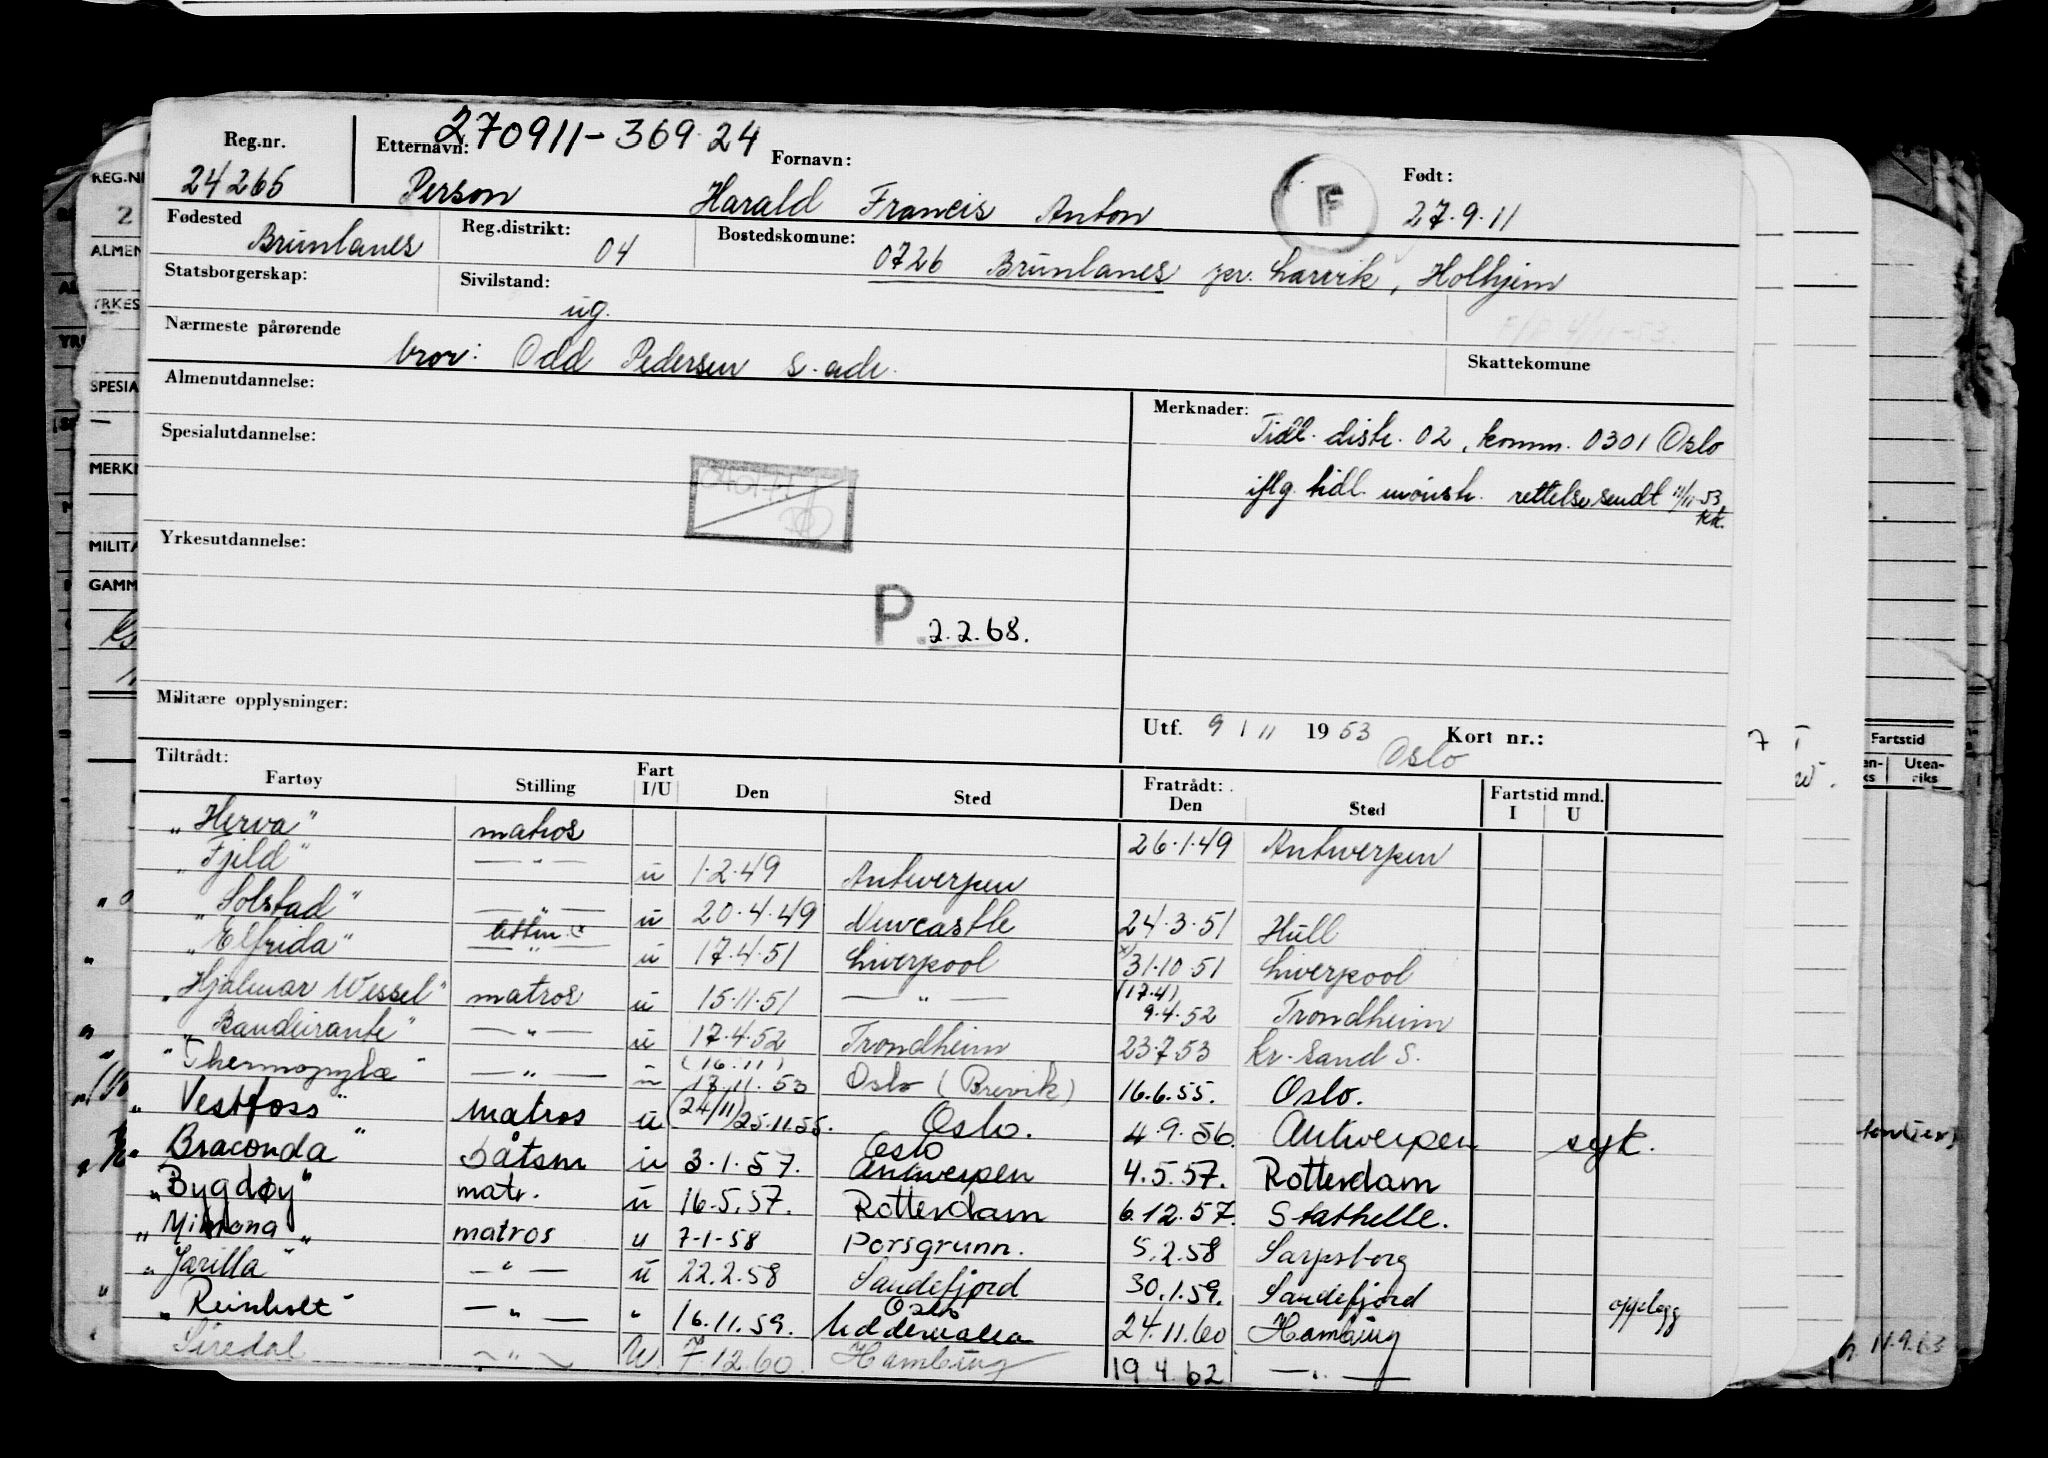 270911-369 24
Reg.nr. Etternavn: Fornavn: Født:
24265 Person Harald Francis Anton F 27.9.11
Fødested Reg.distrikt: Bostedskomune:
Brunlanes 04 0726 Brunlanes pr. Larvik, Holhjem
Statsborgerskap: Sivilstand:
ug.
Nærmeste pårørende
bror: Odd Pedersen s. adr. Skattekomune
Almenutdannelse: Merknader:
Tidl. distr. 02, komm. 0301 Oslo
Spesialutdannelse:
iflg. tidl. mønstr. rettelse sendt 11/11-53
kk.
Yrkesutdannelse:
P. 2.2.68.
Militære opplysninger:
Utf. 9/11 1953 Kort nr.:
Oslo
Tiltrådt: Fratrådt:
Fartøy Stilling Fart I/U Den Sted Den Sted Fartstid mnd. I U
"Herva" matros 26.1.49 Antwerpen
"Fjeld" — " — u 1.2.49 Antwerpen
"Solstad" — " — u 20.4.49 Newcastle 24.3.51 Hull
"Elfrida" — " — u 17.4.51 Liverpool x) 31.10.51 Liverpool
"Hjalmar Wessel" matros u 15.11.51 — " — (17.4) 9.4.52 Trondheim
"Bandeirante" — " — u 17.4.52 Trondheim 23.7.53 Kr. Sand S.
"Thermopylæ" — " — u (16.11) 18.11.53 Oslo (Brevik) 16.6.55. Oslo.
"Vestfoss" matros u (24/11) 25.11.55. Oslo. 4.9.56. Antwerpen syk.
"Braconda" båtsm u 3.1.57. Oslo Antwerpen 4.5.57. Rotterdam
"Bygdøy" matr. u 16.5.57. Rotterdam 6.12.57. Stathelle.
"Mimona" matros u 7-1-58 Porsgrunn. 5.2.58 Sarpsborg
"Jarilla" — " — u 22.2.58 Sandefjord 30.1.59. Sandefjord opplegg
"Reinholt" — " — " 16.11.59. Oslo Uddevalla 24.11.60 Hamburg
Siredal — " — U. 7.12.60. Hamburg 19.4.62 — " —